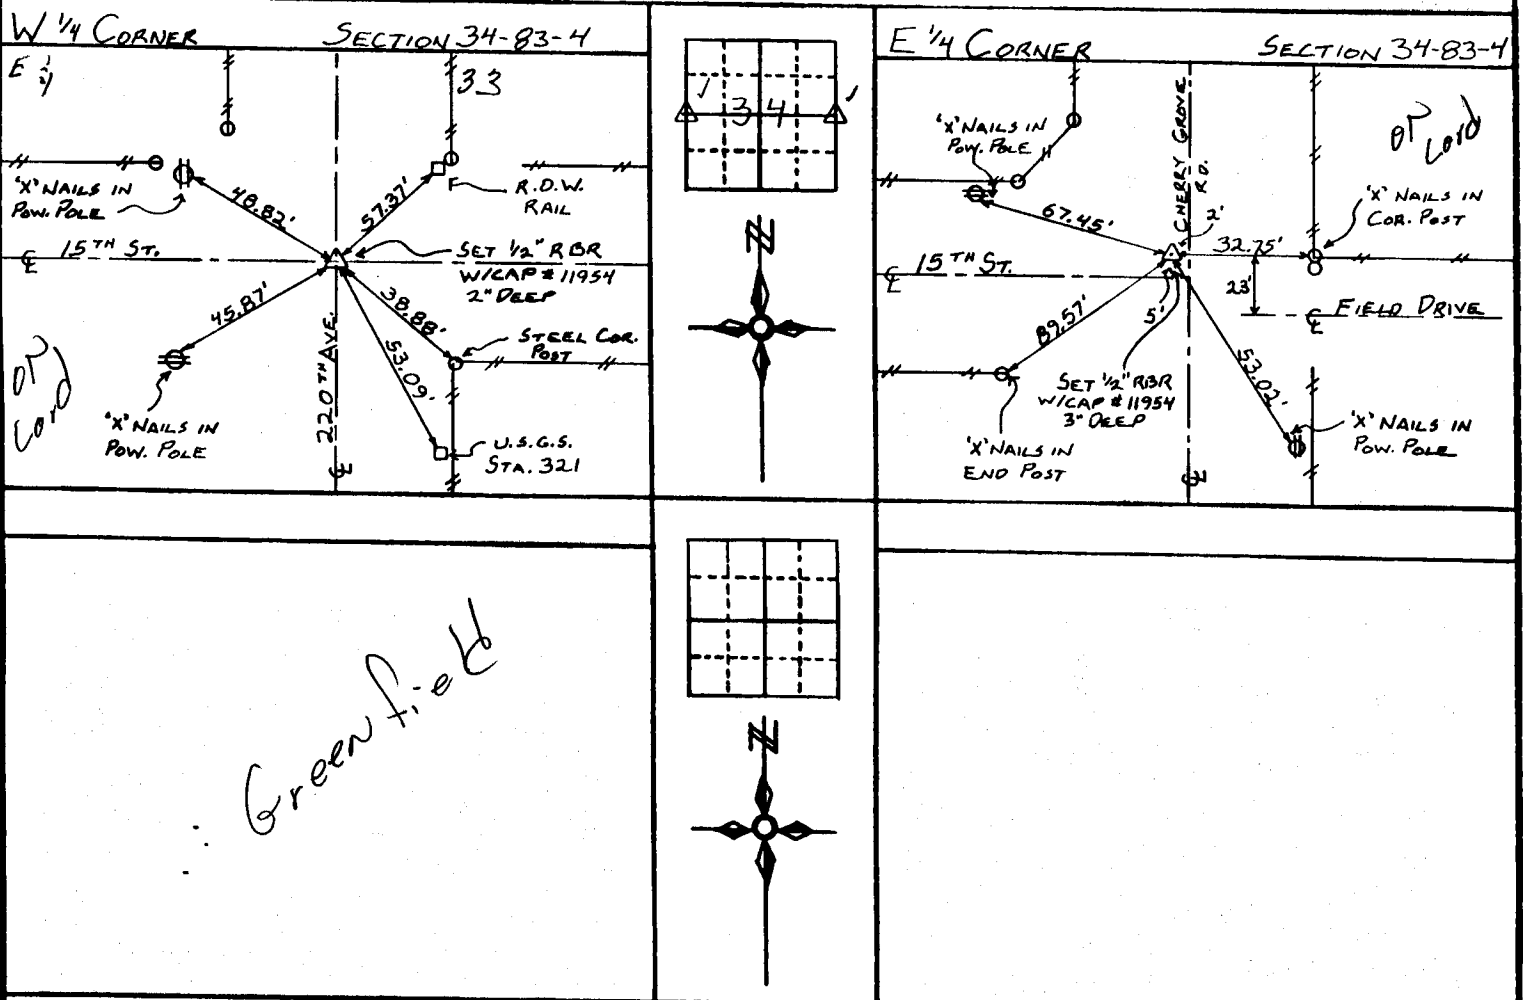 W 1/4 CORNER SECTION 34-83-4
E 1/4
33
'X' NAILS IN
POW. POLE
48.82'
57.37'
R.O.W.
RAIL
℄ 15TH ST.
SET 1/2" RBR
W/CAP # 11954
2" DEEP
45.87'
38.88'
53.09'
STEEL COR.
POST
220TH AVE.
℄
'X' NAILS IN
POW. POLE
U.S.G.S.
STA. 321
or
cord
34
N
E 1/4 CORNER SECTION 34-83-4
'X' NAILS IN
POW. POLE
CHERRY GROVE
RD.
or
cord
'X' NAILS IN
COR. POST
67.45'
2'
32.75'
℄ 15TH ST.
23'
℄ FIELD DRIVE
5'
89.57'
53.02'
SET 1/2" RBR
W/CAP # 11954
3" DEEP
'X' NAILS IN
END POST
'X' NAILS IN
POW. POLE
℄
Greenfield
N